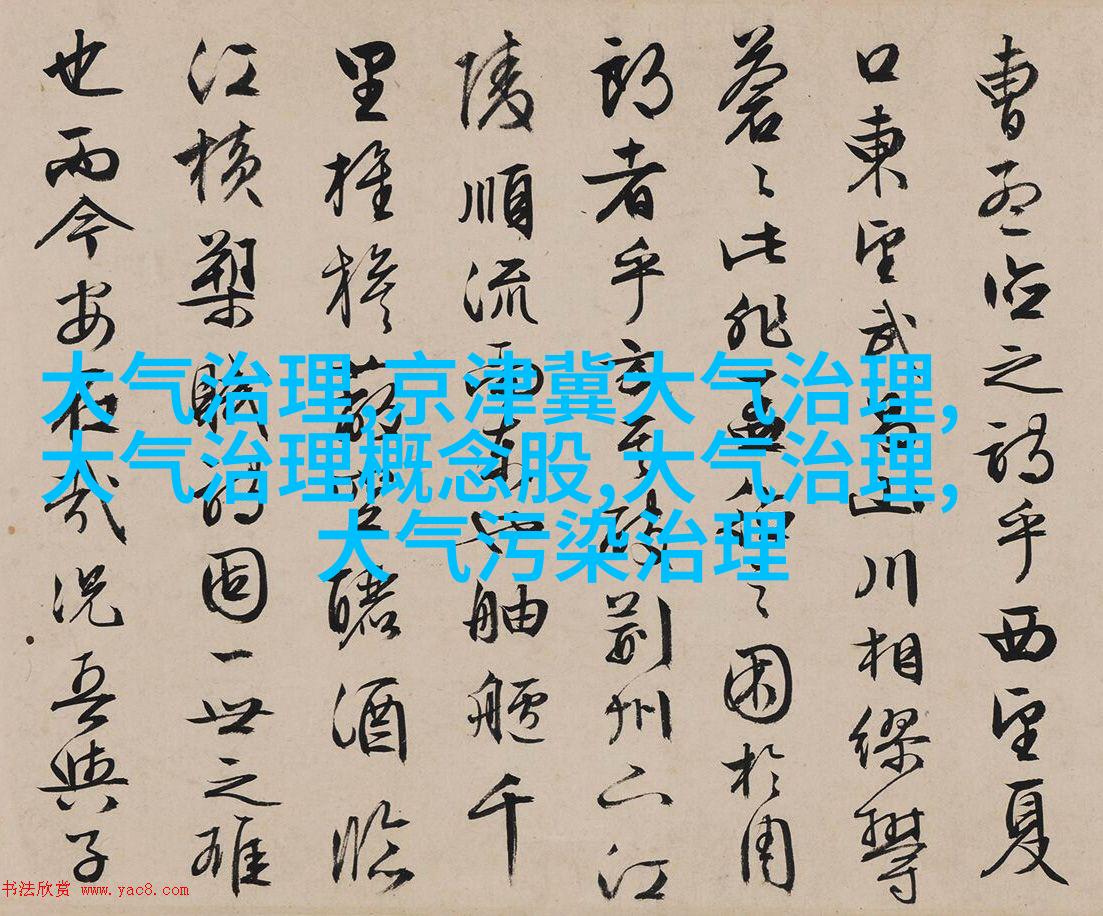 曹孟德之詩乎西望夏
口東望武昌山川相繆鬱
蒼〻此非孟德之困於周
郎者乎方其破荊州下江
陵順流而東也舳艫千
里旌旗蔽空釃酒臨
江橫槊賦詩固一世之雄
也而今安在哉況吾與子
大气治理,京津冀大气治理,
大气治理概念股,大气治理,
大气污染治理
书法欣赏 www.yac8.com